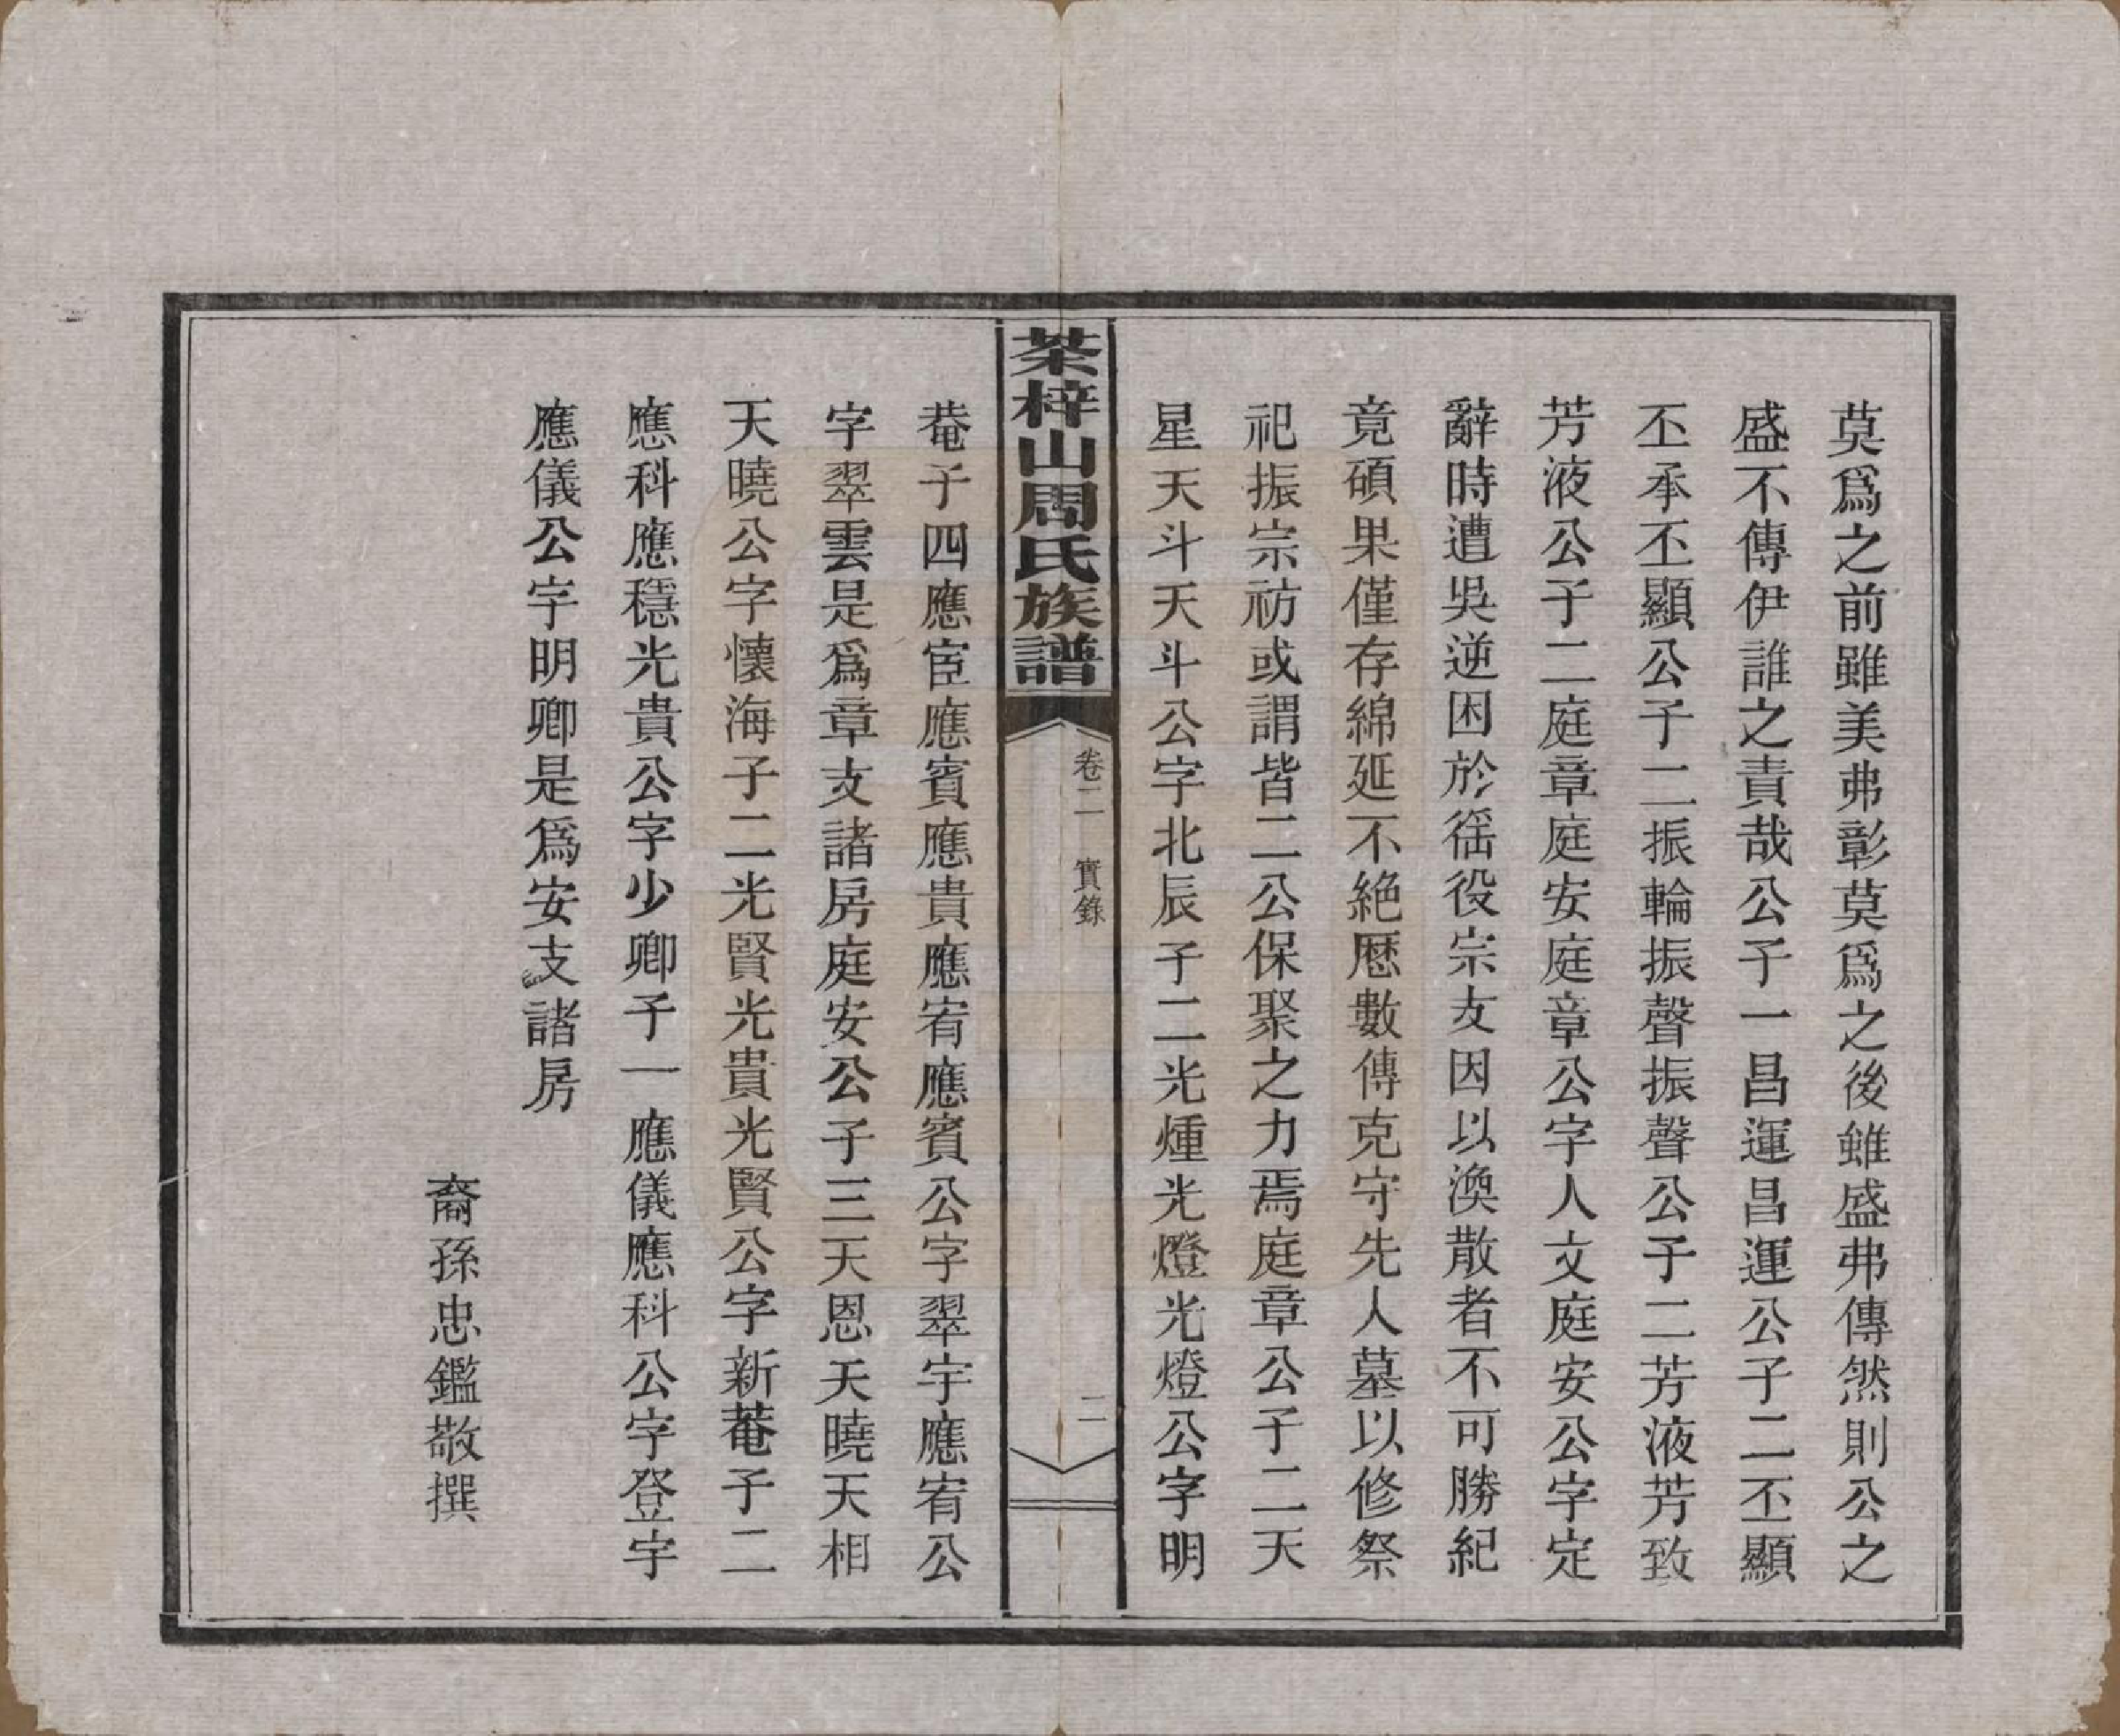 莫爲之前雖美弗彰莫爲之後雖盛弗傳然則公之
盛不傳伊誰之責哉公子一昌運昌運公子二丕顯
丕承丕顯公子二振輪振聲振聲公子二芳液芳致
芳液公子二庭章庭安庭章公字人文庭安公字定
辭時遭吳逆困於徭役宗支因以渙散者不可勝紀
竟碩果僅存綿延不絶歷數傳克守先人墓以修祭
祀振宗祊或謂皆二公保聚之力焉庭章公子二天
星天斗天斗公字北辰子二光煄光燈光燈公字明
茶梓山周氏族譜
卷二 實錄
二
菴子四應宦應賓應貴應宥應賓公字翠宇應宥公
字翠雲是爲章支諸房庭安公子三天恩天曉天相
天曉公字懷海子二光賢光貴光賢公字新菴子二
應科應穩光貴公字少卿子一應儀應科公字登宇
應儀公字明卿是爲安支諸房
裔孫忠鑑敬撰